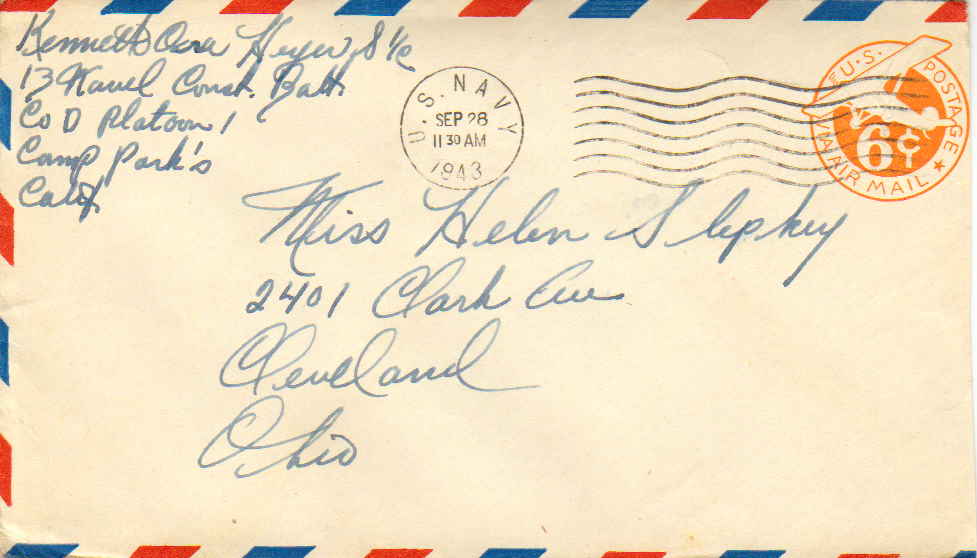 Kenneth Heyer S 1/c
13 Naval Const. Batt.
Co D Platoon 1
Camp Park's
Calif.
U.S. NAVY
SEP 28
11 30 AM
1943
U.S. POSTAGE
6¢
VIA AIR MAIL
Miss Helen Slepkey
2401 Clark Ave
Cleveland
Ohio